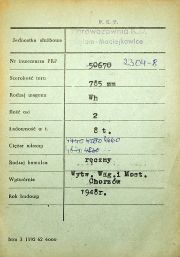 P. K. P.
Jednostka służbowa
Nr inwentarza PKP 50670 2304-8
Szerokość toru 785 mm
Rodzaj wagonu Wh
Ilość osi 2
Ładowność w t. 8 t.
Ciężar własny
Rodzaj hamulca ręczny
Wytwórnia Wytw. Wag. i Most. Chorzów
Rok budowy 1948r.